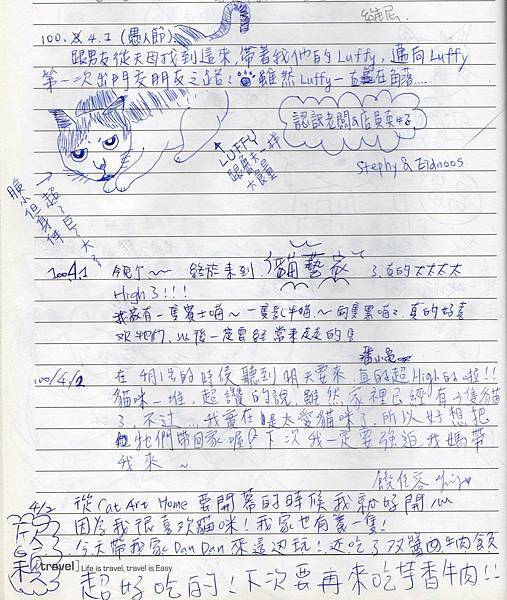 維尼
100.4.1 (愚人節)
跟男友從天母找到這來,帶著我們的Luffy,邁向Luffy
第一次出門交朋友之路! 雖然Luffy一直塞在角落....
認識老闆&店員真好
Stephy & Eidnoos
LUFFY
跟實
臉小但身體超~巨~大~
100.4.1 今兒個~~ 終於來到 貓藝家 了,真的太太太太
High了!!!
我家有一隻賓士喵~一隻乳牛喵~兩隻黑喵~真的好喜
歡牠們,以後一定要經常來走走的
潘小魚
100/4/2 在4月1号的時候聽到明天要來,真的超High的啦!!
貓咪一堆,超讚的說,雖然家裡已經有3隻貓
了,不过....我實在是太愛貓咪了,所以好想把
牠們帶回家喔 下次我一定要強迫我媽帶
我來 ~
4/2 從Cat Art Home要開幕的時候我就好開心
因為我很喜歡貓咪!我家也有養一隻!
今天帶我家DanDan來這边玩!还吃了双醬 牛肉飯
超好吃的!下次要再來吃芋香牛肉!!
下次
再
來
[travel] Life is travel, travel is Easy